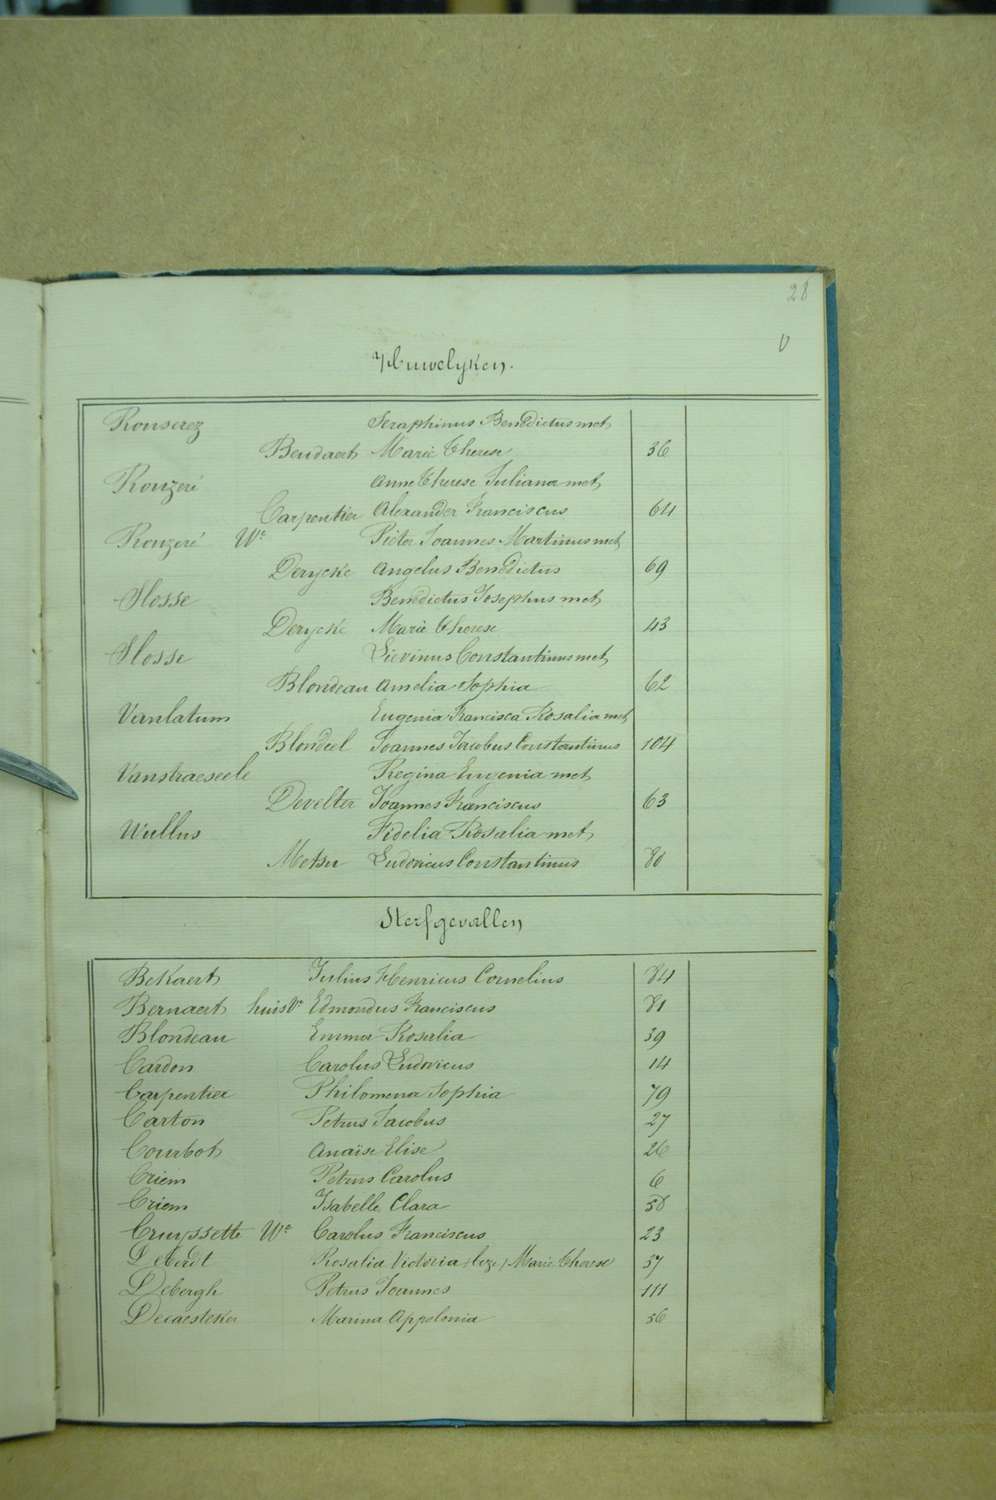 28
V
Huwelyken.
Rouserez Seraphinus Benedictus met
Bendaert Marie Therese 36
Rouzeré Anne Therese Juliana met
Carpentier Alexander Franciscus 64
Rouzeré We Pieter Joannes Martinus met
Derycke Angelus Benedictus 69
Slosse Benedictus Josephus met
Derycke Marie Therese 43
Slosse Lievinus Constantinus met
Blondeau Amelia Sophia 62
Vanlatum Eugenia Francisca Rosalia met
Blondeel Joannes Jacobus Constantinus 104
Vanstraeseele Regina Eugenia met
Develter Joannes Franciscus 63
Wullus Fidelia Rosalia met
Metsu Ludovicus Constantinus 80
Sterfgevallen
Bekaert Julius Henricus Cornelius 84
Bernaert huisve Edmondus Franciscus 81
Blondeau Emma Rosalia 39
Cardon Carolus Ludovicus 14
Carpentier Philomena Sophia 79
Carton Petrus Jacobus 27
Courbot Anaïse Elise 26
Criem Petrus Carolus 6
Criem Isabelle Clara 58
Cruyssette We Carolus Franciscus 23
Deberdt Rosalia Victoria (leze) Marie Therese 37
Debergh Petrus Joannes 111
Decaesteker Marina Appolonia 56